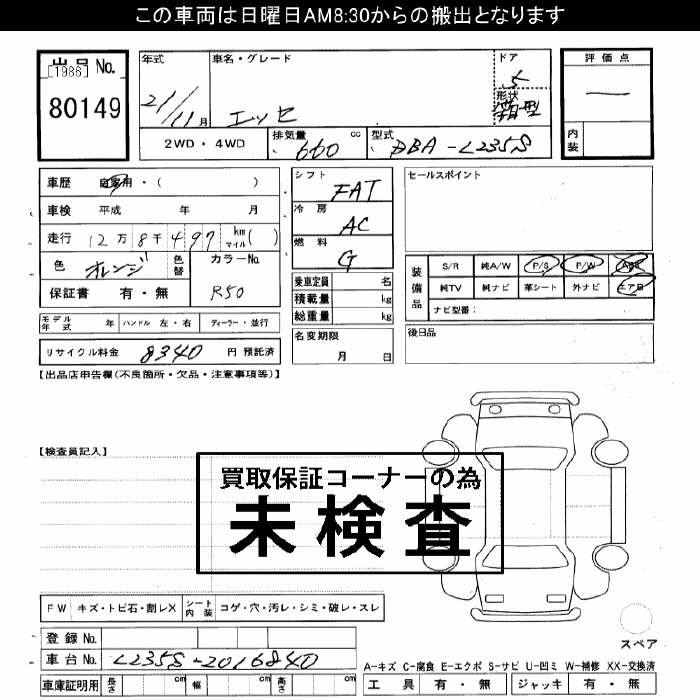 この車両は日曜日AM8:30からの搬出となります
出品No. 年式 車名・グレード ドア 評価点
[1986] 5
80149 21/11月 エッセ 形状 箱型 —
2WD・4WD 排気量 660 cc 型式 DBA-L235S 内装
車歴 自家用・( ) シフト FAT セールスポイント
車検 平成 年 月 冷房 AC
走行 12万8千497 km マイル ( ) 燃料 G
色 オレンジ 色替 カラーNo. R50 装備品 S/R 純A/W P/S P/W ABS
保証書 有・無 乗車定員 名 純TV 純ナビ 革シート 外ナビ エアB
積載量 kg ナビ型番:
モデル年式 年 ハンドル 左・右 ディーラー・並行 総重量 kg
リサイクル料金 8340 円 預託済 名変期限 月 日 後日品
【出品店申告欄(不良箇所・欠品・注意事項等)】
【検査員記入】
買取保証コーナーの為
未検査
FW キズ・トビ石・割レX シート内装 コゲ・穴・汚レ・シミ・破レ・スレ
登録No. スペア
車台No. L235S-2016840 A-キズ C-腐食 E-エクボ S-サビ U-凹ミ W-補修 XX-交換済
車庫証明用 長さ cm 幅 cm 高さ cm 工具 有・無 ジャッキ 有・無